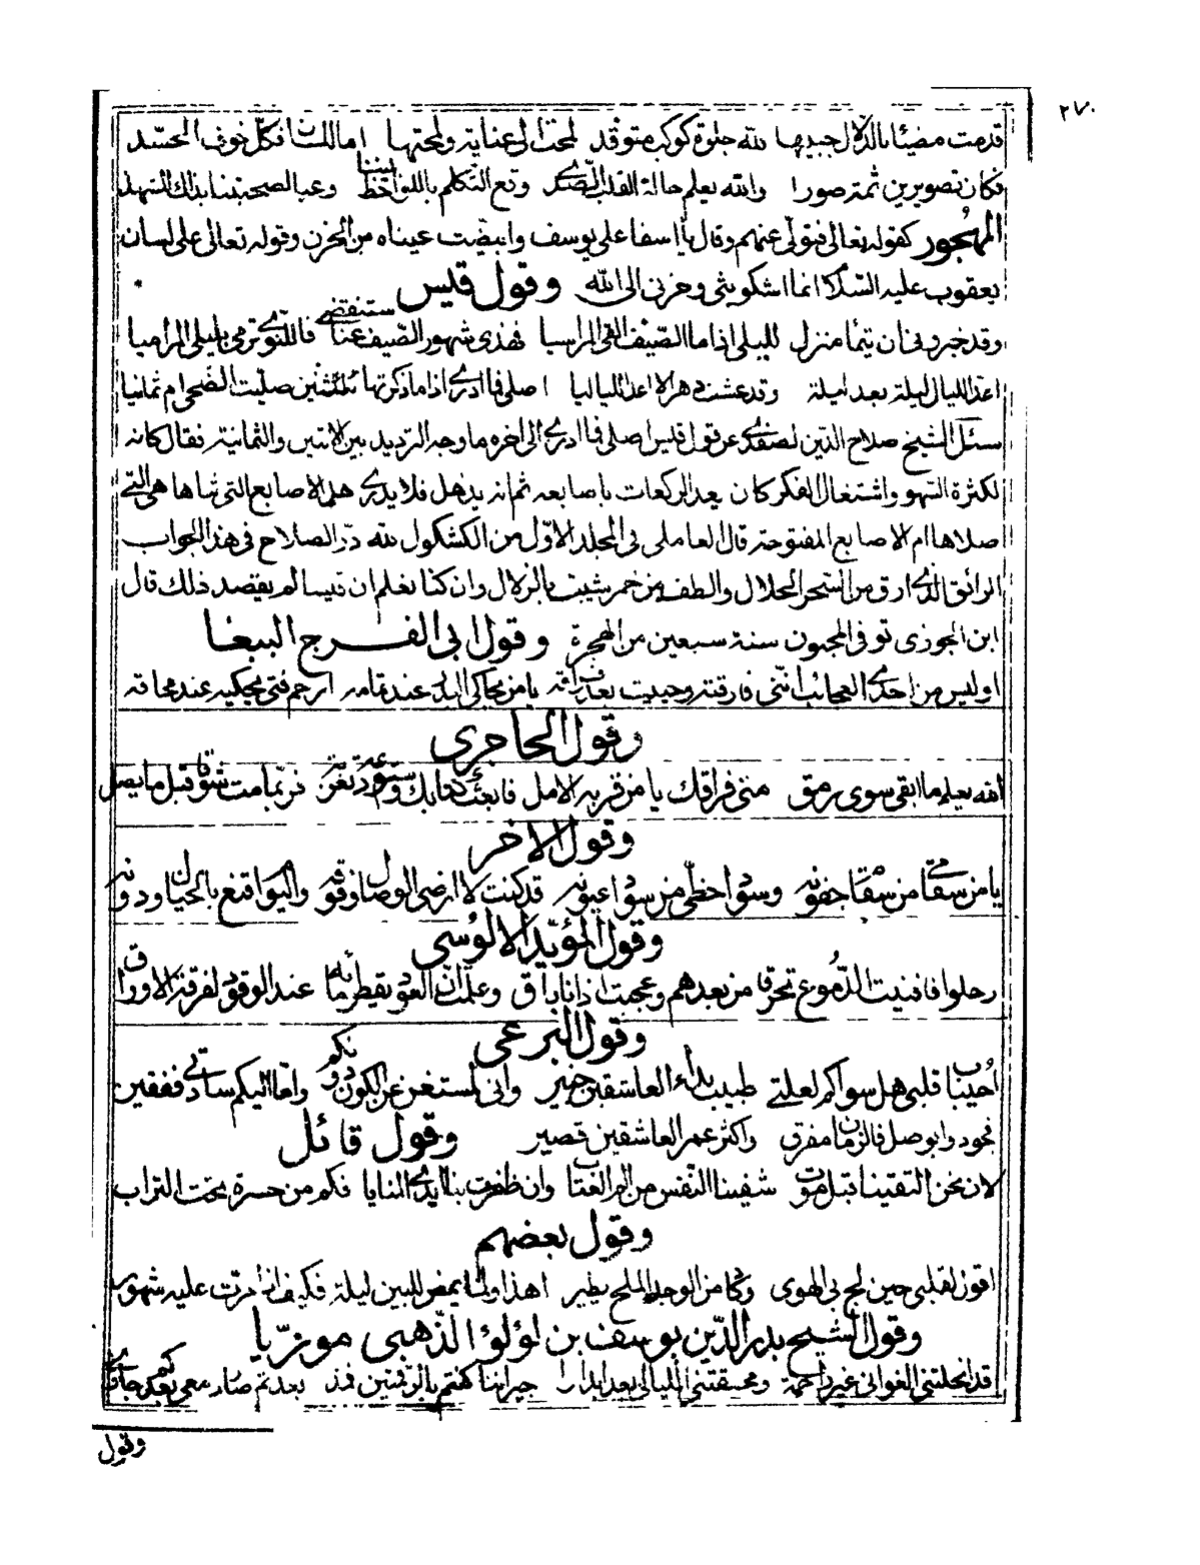 ٢٧٠
قدمت مضيئا بالدلال جيدها لله جلوة كوكب متوقد لمحت الى عناية ولمحتها امالت فكل خوف الحسد
فكان تصويرين ثمة صورا والله يعلم حالة القلب الصدى وقع التكلم باللواحظ بيننا وعبا الصحبتنا بذلك المشهد
المهجور كقوله تعالى فتولى عنهم وقال يا اسفا على يوسف وابيضت عيناه من الحزن وقوله تعالى على لسان
يعقوب عليه السلام انما اشكو بثي وحزني الى الله وقول قيس
وقد خبروني ان تيما منزل لليلى اذا ما الصيف القى المراسيا فهذي شهور الصيف عنا ستنقضي فما للنوى ترمي بليلى المراميا
اعد الليالي ليلة بعد ليلة وقد عشت دهرا لا اعد اللياليا اصلي فما ادري اذا ما ذكرتها اثنتين صليت الضحى ام ثمانيا
سئل الشيخ صلاح الدين الصفدي عن قول قيس اصلي فما ادري الى آخره ما وجه الترديد بين الاثنين والثمانية فقال كانه
لكثرة السهو واشتغال الفكر كان يعد الركعات باصابعه ثم انه يذهل فلا يدري هل الاصابع التي ثناها هي التي
صلاها ام الاصابع المفتوحة قال العاملي في المجلد الاول من الكشكول لله در الصلاح في هذا الجواب
الرائق الذي ارق من السحر الحلال والطف من خمر شيبت بالزلال وان كنا نعلم ان قيسا لم يقصد ذلك قال
ابن الجوزي توفي المجنون سنة سبعين من الهجرة وقول ابي الفرج الببغا
اوليس من احدى العجائب انني فارقته وحييت بعد فراقه يا من يحاكي البدر عند تمامه ارحم فتى يحكيه عند محاقه
وقول الحاجري
الله يعلم ما ابقى سوى رمق مني فراقك يا من قربه الامل فابعث كتابك واستودعه تعزية فربما مت شوقا قبل ما يصل
وقول الآخر
يا من سقامي من سقام جفونه وسواد حظي من سواد عيونه قد كنت لا ارضى الوصال وفوقه واليوم اقنع بالخيال ودونه
وقول المؤيد الالوسي
رحلوا فافنيت الدموع تحرقا من بعدهم وعجبت اذ انا باق وعلمت ان العود يقطر ماؤه عند الوقود لفرقة الاوراق
وقول البرعي
احباب قلبي هل سواكم لعلتي طبيب بداء العاشقين خبير واني لمستغن عن الكون دونكم واما اليكم سادتي ففقير
فجودوا بوصل فالزمان مفرق واكثر عمر العاشقين قصير وقول قائل
لان نحن التقينا قبل موت شفينا النفس من الم العتاب وان ظفرت بنا ايدي المنايا فكم من حسرة تحت التراب
وقول بعضهم
اقول لقلبي حين لج بي الهوى وكاد من الوجد المبلح يطير اهذا ولما يمض للبين ليلة فكيف اذا مرت عليه شهور
وقول الشيخ بدر الدين يوسف بن لؤلؤ الذهبي موريا
قد انحلتني الغواني غير راحمة ومحقتني الليالي بعد ابدار جيراننا كنتم بالرقمتين فمذ بعدتم صار دمعي بعدكم جاري
وقول